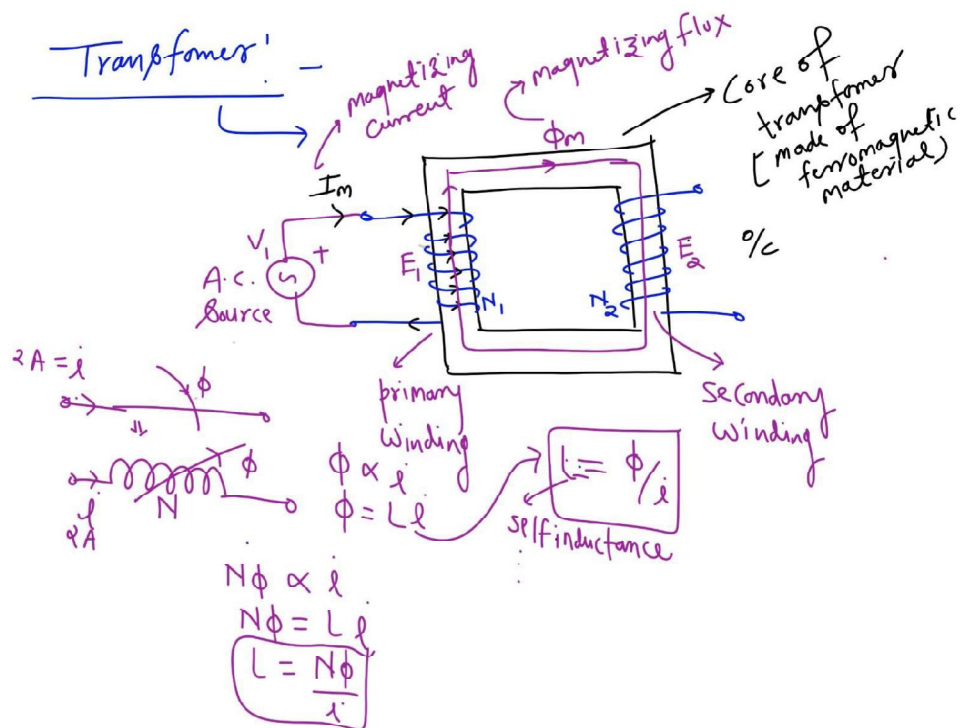 Transfomer! –
magnetizing
current
magnetizing flux
Core of
transfomer
[made of
ferromagnetic
material)
ϕm
Im
V1
+
A.C.
Source
E1
N1
N2
E2
o/c
primary
winding
secondary
winding
2A = i
ϕ
⇓
ϕ
N
i
2A
ϕ ∝ i
ϕ = Li
L = ϕ/i
self inductance
Nϕ ∝ i
Nϕ = Li
L = Nϕ/i